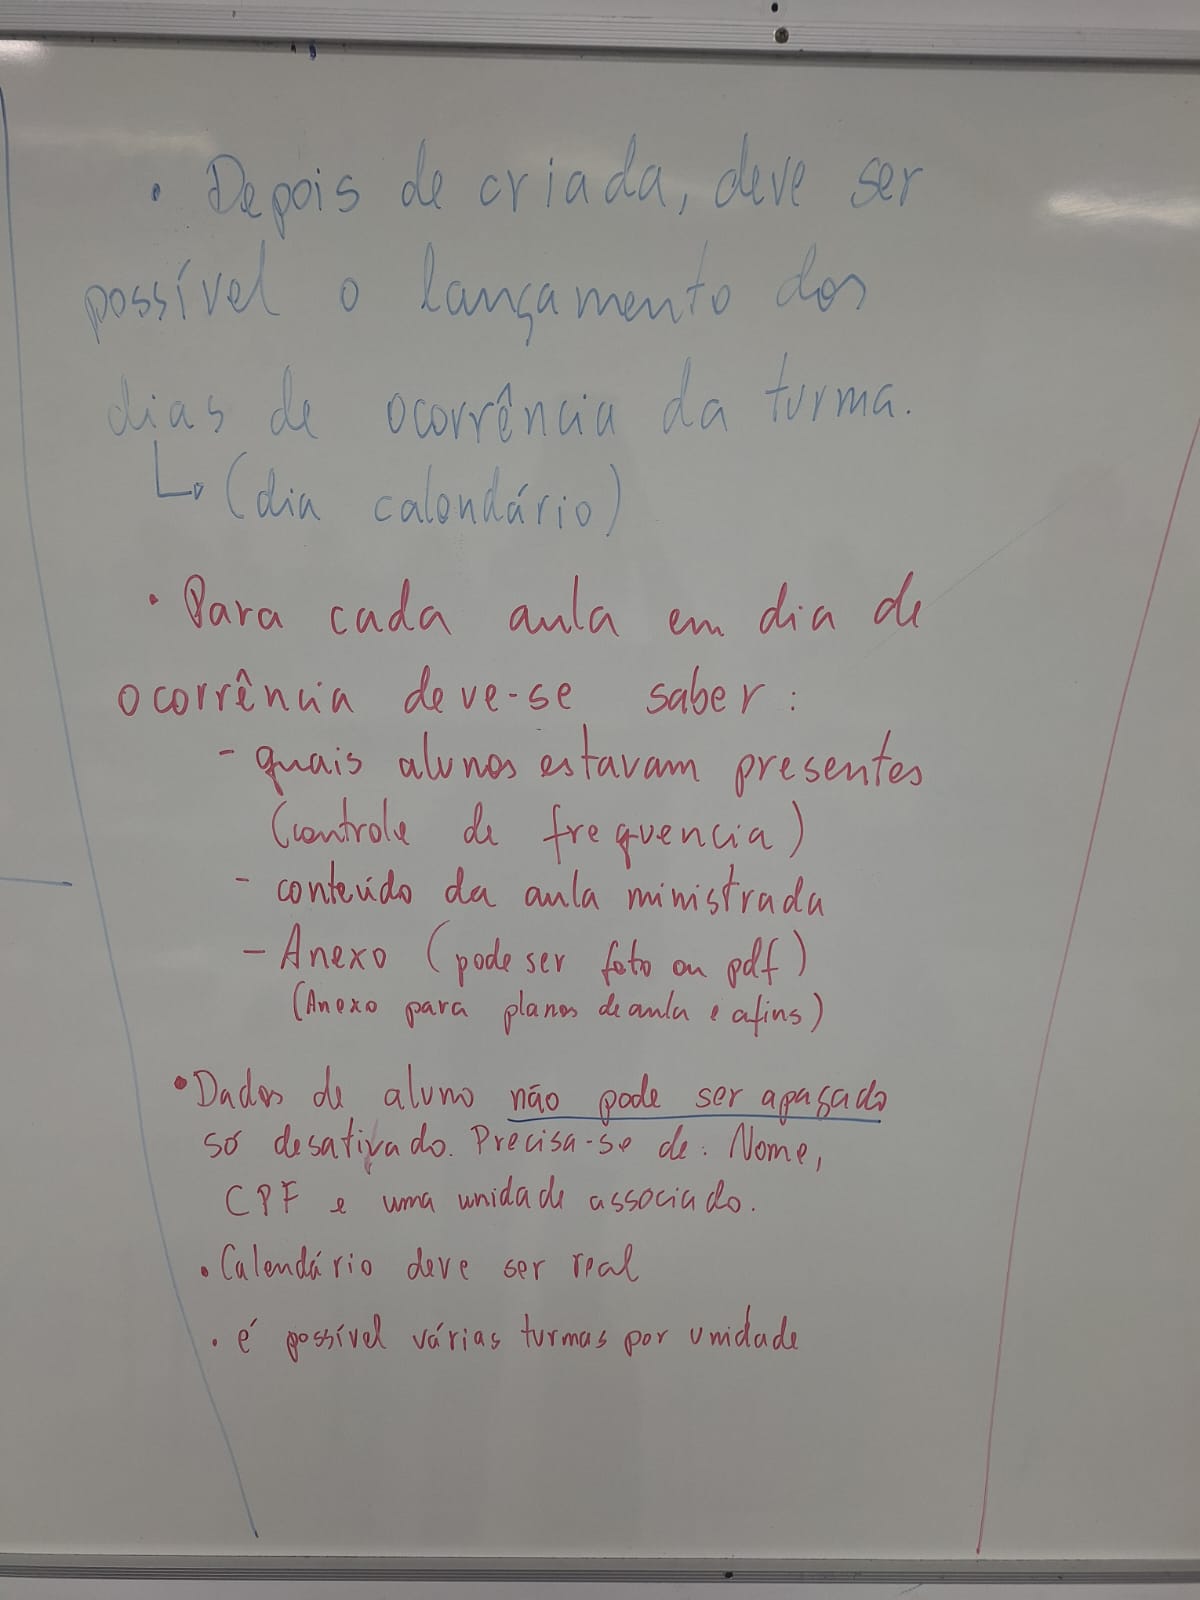 • Depois de criada, deve ser
possível o lançamento dos
dias de ocorrência da turma.
↳ (dia calendário)
• Para cada aula em dia de
ocorrência deve-se saber:
- quais alunos estavam presentes
(controle de frequencia)
- conteúdo da aula ministrada
- Anexo (pode ser foto ou pdf)
(Anexo para planos de aula e afins)
• Dados de aluno não pode ser apagado
só desativado. Precisa-se de: Nome,
CPF e uma unidade associado.
• Calendário deve ser real
• é possível várias turmas por unidade